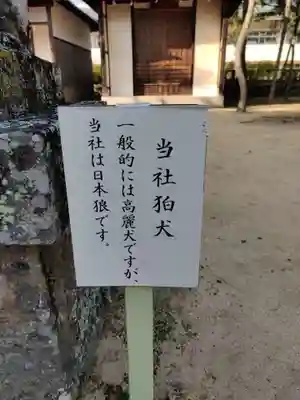 当社狛犬
一般的には高麗犬ですが、
当社は日本狼です。